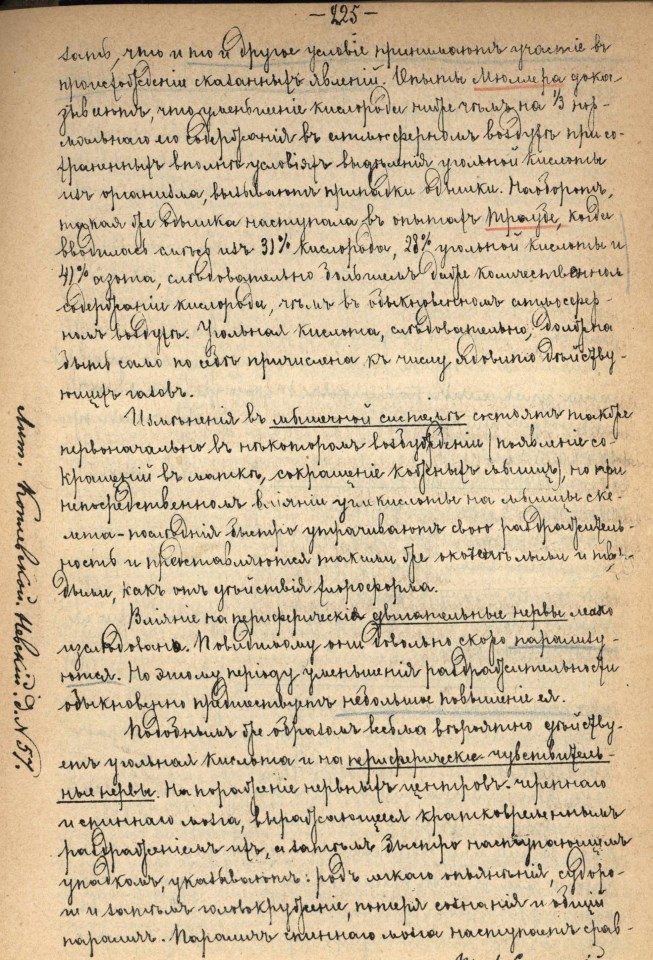 —225—
зать, что и то и другое условіе принимаютъ участіе въ
происхожденіе сказанныхъ явленій. Опыты Мюллера дока-
зываютъ, что уменьшеніе кислорода ниже чѣмъ на 1/3 нор-
мальнаго его содержанія въ атмосферномъ воздухѣ при со-
храненныхъ вполнѣ условіяхъ выдѣленія угольной кислоты
изъ организма, вызываютъ припадки одышки. Наоборотъ,
такая же одышка наступала въ опытахъ Траубе, когда
вводилась смѣсь изъ 31% кислорода, 28% угольной кислоты и
41% азота, слѣдовательно при большемъ даже количественномъ
содержаніи кислорода, чѣмъ въ обыкновенномъ атмосфер-
номъ воздухѣ. Угольная кислота, слѣдовательно, должна
быть само по себѣ причислена къ числу ядовито дѣйству-
ющихъ газовъ.
Измѣненія въ мышечной системѣ состоятъ также
первоначально въ нѣкоторомъ возбужденіи (появленіе со-
кращеній въ маткѣ, сокращеніе кожныхъ мышцъ), но при
непосредственномъ вліяніи угл. кислоты на мышцы ске-
лета-послѣднія быстро утрачиваютъ свою раздражитель-
ность и представляются такими же окоченѣлыми и твер-
дыми, какъ отъ дѣйствія хлороформа.
Вліяніе на периферическіе двигательные нервы мало
изслѣдовано. Повидимому они довольно скоро парализу-
ются. Но этому періоду уменьшенія раздражительности
обыкновенно предшествуетъ небольшое повышеніе ея.
Подобнымъ же образомъ весьма вѣроятно дѣйству-
етъ угольная кислота и на периферическіе чувствитель-
ные нервы. На пораженіе нервныхъ центровъ-черепнаго
и спиннаго мозга, выражающееся кратковременнымъ
раздраженіемъ ихъ, а затѣмъ быстро наступающимъ
упадкомъ, указываютъ: родъ легкаго опьяненія, судоро-
ги и затѣмъ головокруженіе, потеря сознанія и общій
параличъ. Параличъ спиннаго мозга наступаетъ срав-
Лит. Невскій. д. N 57.